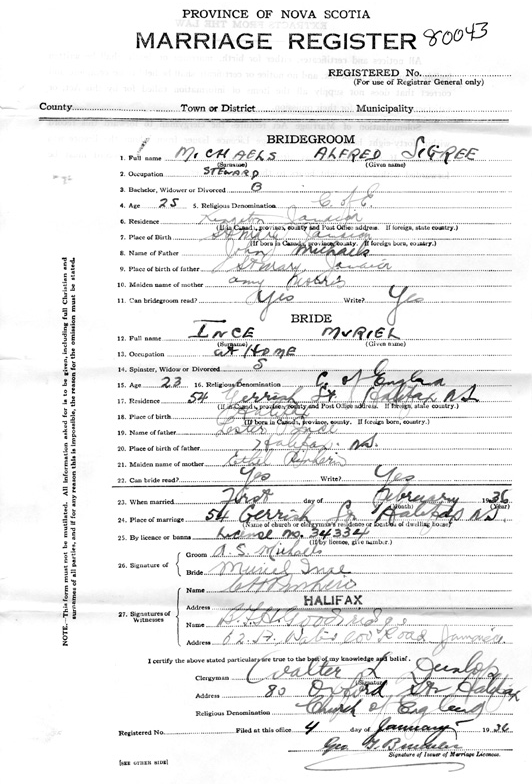 PROVINCE OF NOVA SCOTIA
MARRIAGE REGISTER 80043
REGISTERED No.
(For use of Registrar General only)
County Town or District Municipality
BRIDEGROOM
1. Full name MICHAELS ALFRED
(Surname) (Given name)
2. Occupation STEWARD
3. Bachelor, Widower or Divorced B
4. Age 25 5. Religious Denomination C. of E.
6. Residence Kingston Jamaica
(If in Canada, province, county and Post Office address. If foreign, state country.)
7. Place of Birth St Mary Jamaica
(If born in Canada, province, county. If foreign born, country.)
8. Name of Father John Michaels
9. Place of birth of father St Mary Jamaica
10. Maiden name of mother Amy Morris
11. Can bridegroom read? Yes Write? Yes
BRIDE
12. Full name INCE MURIEL
(Surname) (Given name)
13. Occupation at HOME
14. Spinster, Widow or Divorced S
15. Age 23 16. Religious Denomination C. of England
17. Residence 54 Gerrish St Halifax N.S
(If in Canada, province, county and Post Office address. If foreign, state country.)
18. Place of birth Halifax
(If born in Canada, province, county. If foreign born, country.)
19. Name of father
20. Place of birth of father Halifax N.S.
21. Maiden name of mother Ethel
22. Can bride read? Yes Write? Yes
23. When married First day of February 1936
(Month) (Year)
24. Place of marriage 54 Gerrish St Halifax N.S
(Name of church or clergyman's residence or number of dwelling house)
25. By licence or banns License no. 34334
(If by licence, give number.)
26. Signature of Groom A. S. Michaels
Bride Muriel Ince
27. Signatures of Witnesses
Name
Address HALIFAX
Name
Address Road Jamaica
I certify the above stated particulars are true to the best of my knowledge and belief.
Clergyman Walter L Dunlop
(Signature)
Address 80 Oxford St Halifax
Religious Denomination Church of England
Registered No. Filed at this office 4 day of January 1936
Geo
Signature of Issuer of Marriage Licenses.
[SEE OTHER SIDE]
NOTE.—This form must not be mutilated. All information asked for is to be given, including full Christian and
surnames of all parties, and if for any reason this is impossible, the reason for the omission must be stated.